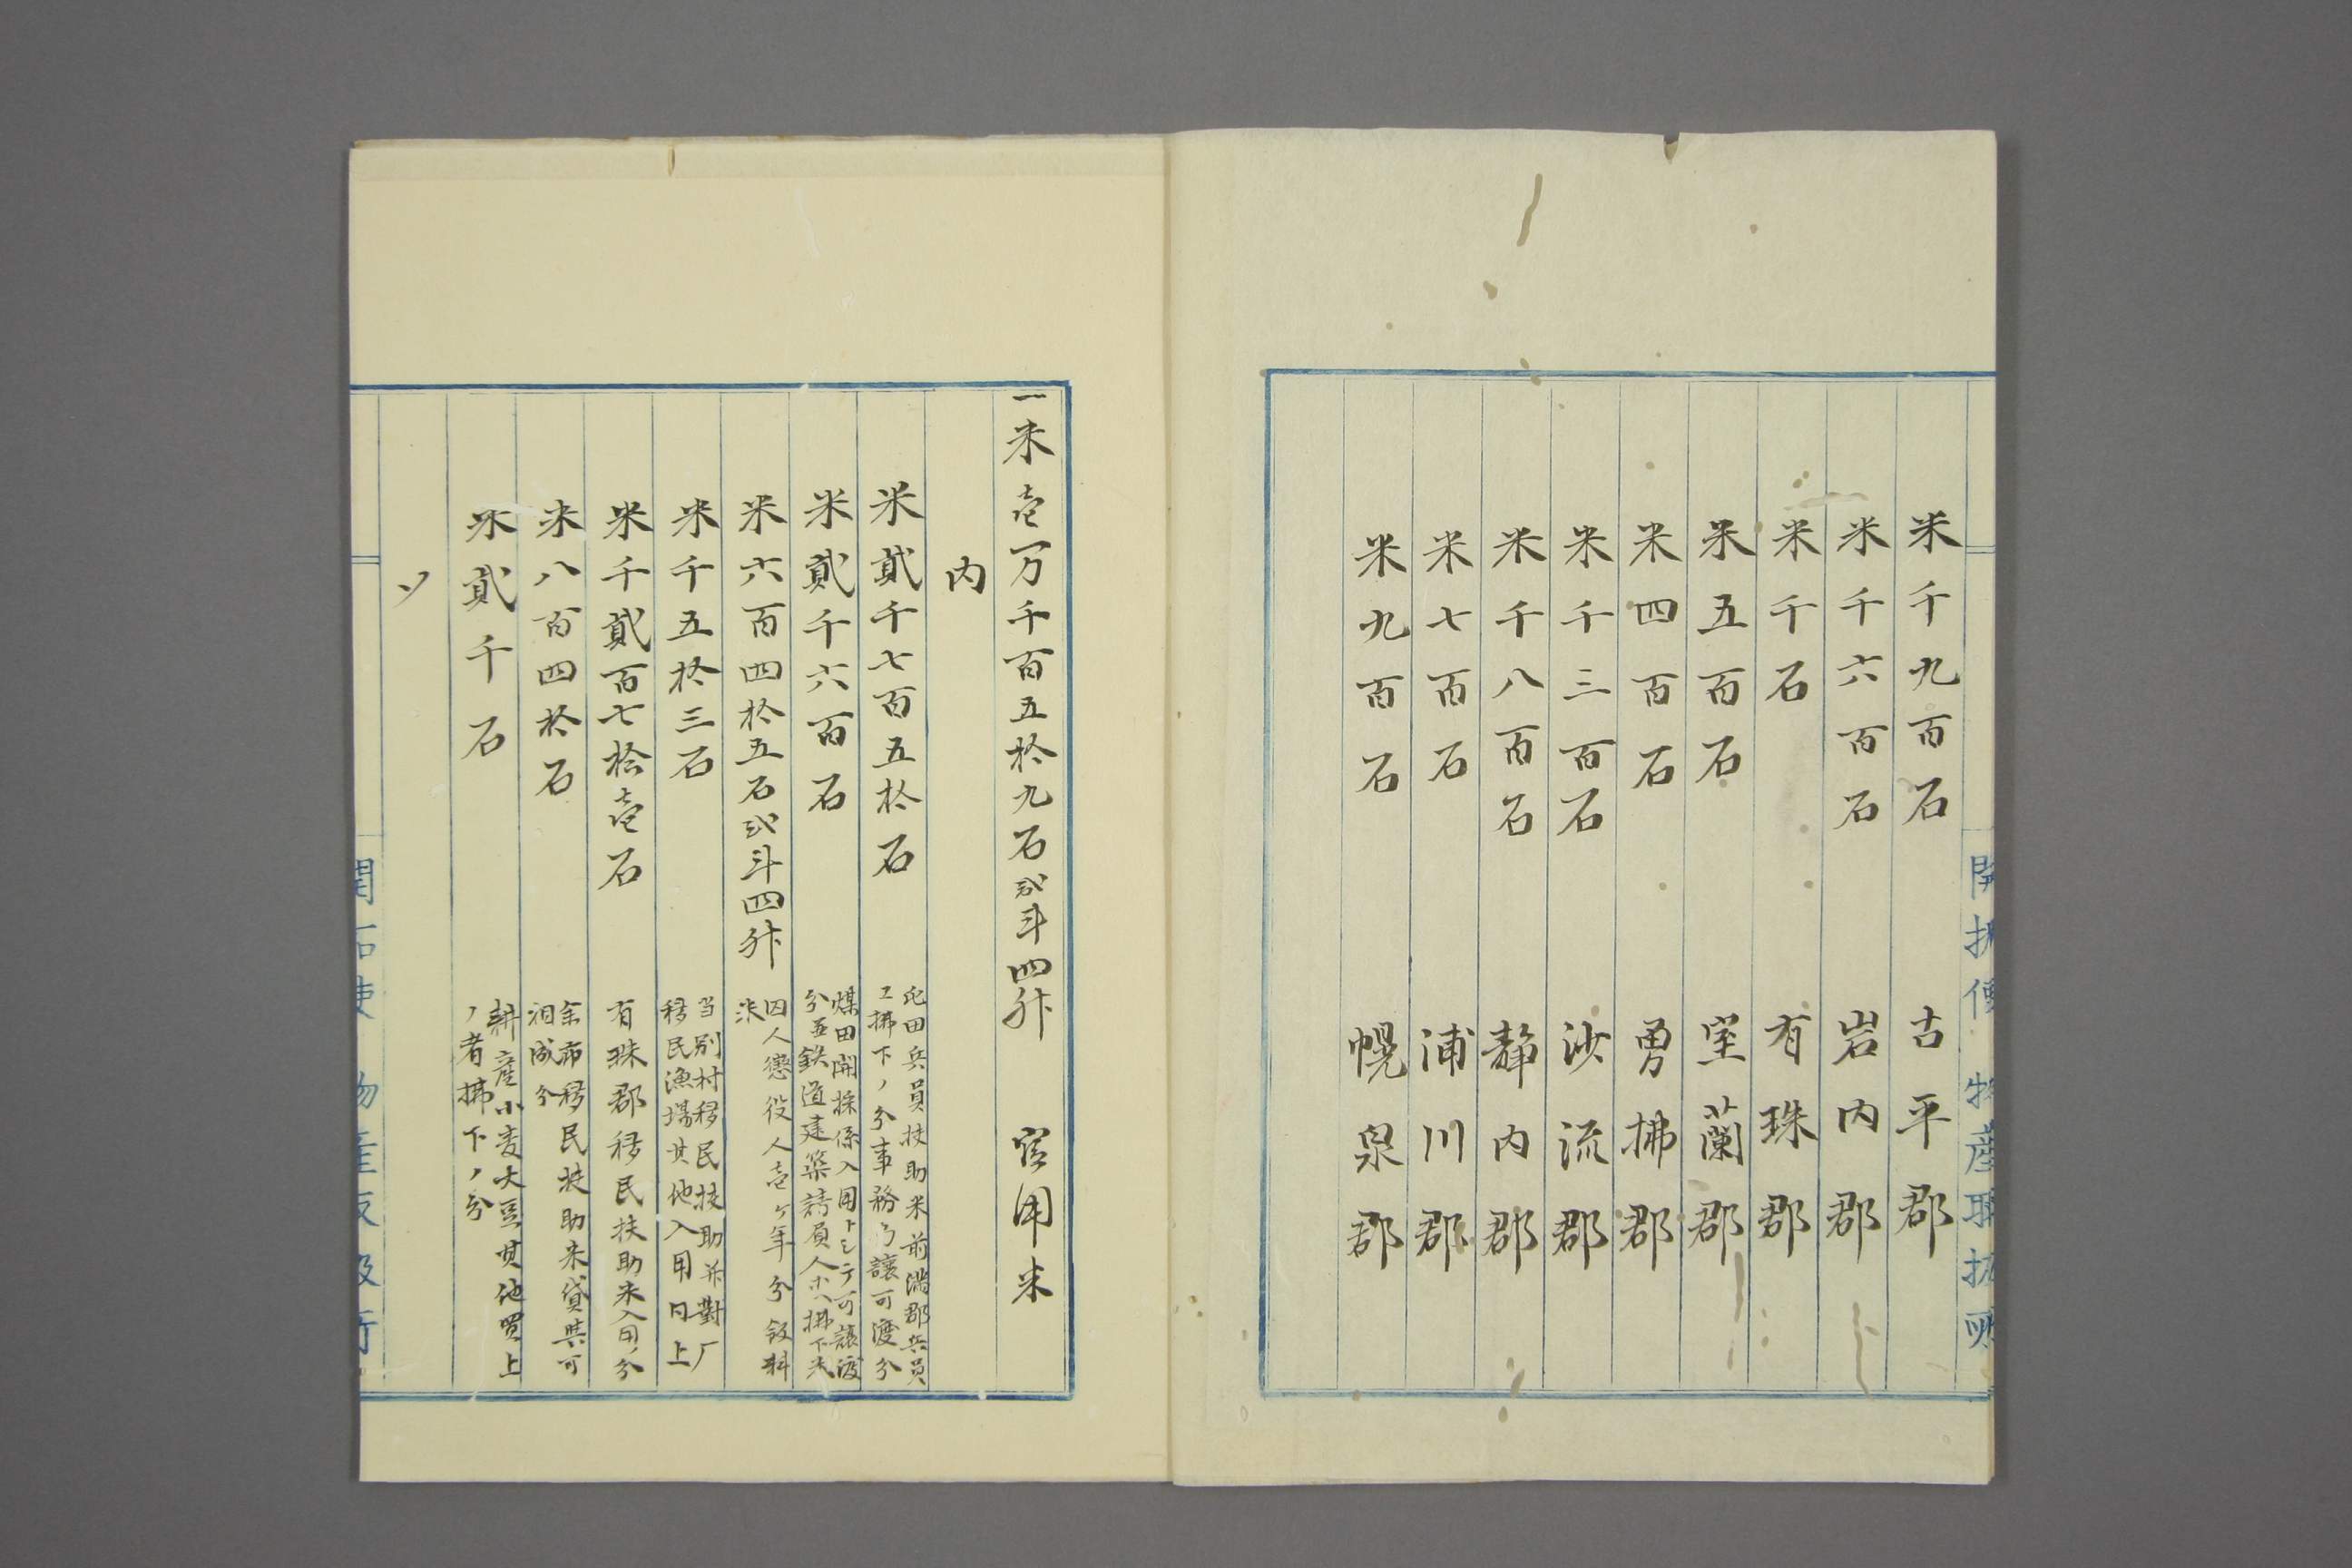 米千九百石　古平郡
米千六百石　岩内郡
米千石　有珠郡
米五百石　室蘭郡
米四百石　勇拂郡
米千三百石　沙流郡
米千八百石　静内郡
米七百石　浦川郡
米九百石　幌泉郡
一米壱万千百五拾九石弐斗四升　官用米
内
米貳千七百五拾石　屯田兵員扶助米前滿郡兵員
エ拂下ノ分事務ゟ讓可渡分
米貳千六百石　煤田開採係入用トシテ可讓渡
分並鉄道建築請負人ホヘ拂下米
米六百四拾五石弐斗四升　囚人懲役人壱ヶ年分飯料
米
米千五拾三石　当別村移民扶助並對厂
移民漁場其他入用同上
米千貳百七拾壱石　有珠郡移民扶助米入用ノ分
米八百四拾石　余市移民扶助米貸與可
相成分
米貳千石　耕産小麦大豆其他買上
ノ者拂下ノ分
〆
開拓使 物産取扱所